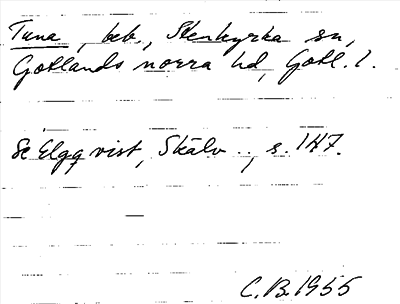 Tuna, beb., Stenkyrka sn,
Gotlands norra hd, Gotl. l.
Se Elgqvist, Skälv .., s. 147.
C.B. 1955